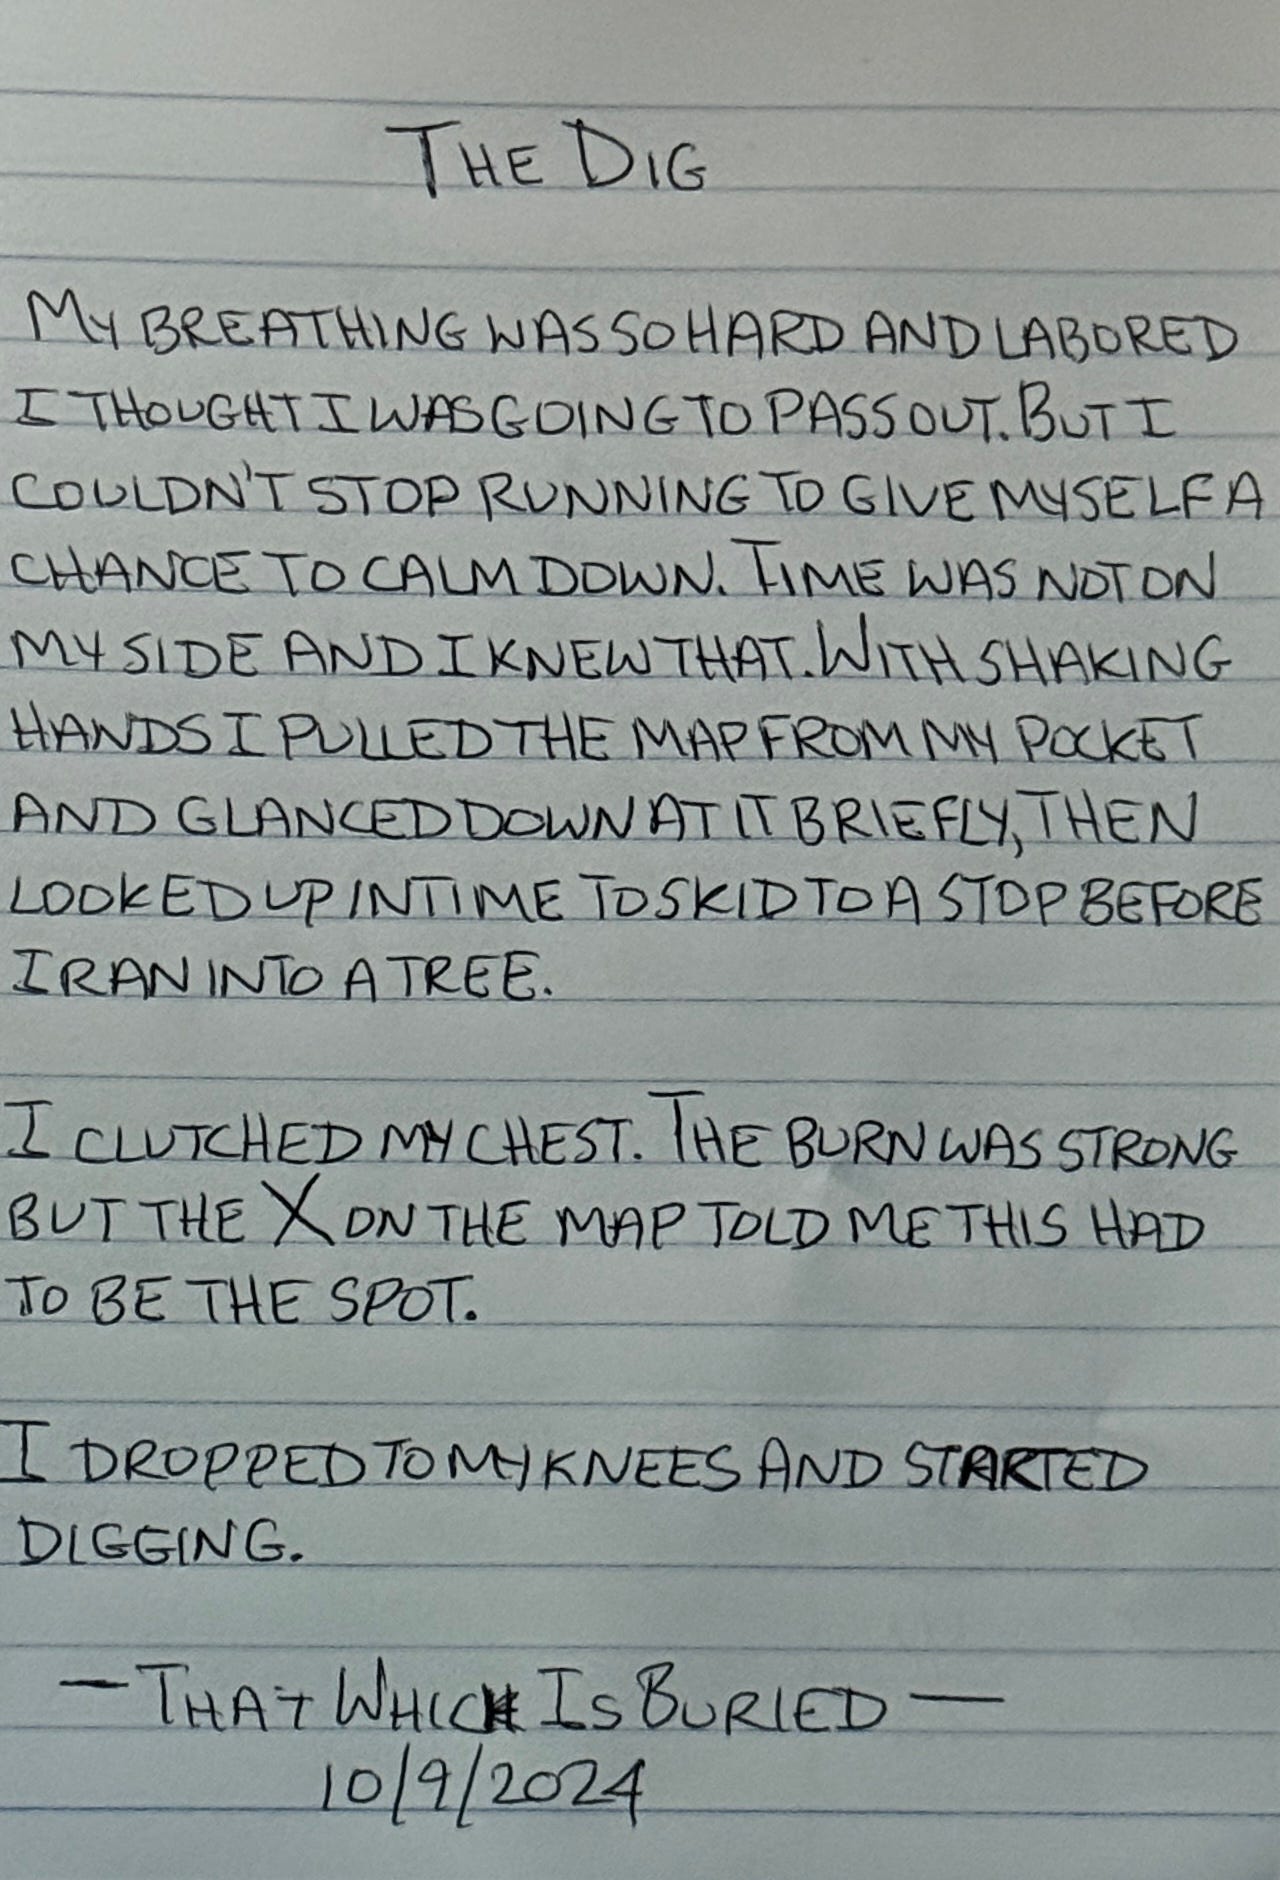 THE DIG
MY BREATHING WAS SO HARD AND LABORED
I THOUGHT I WAS GOING TO PASS OUT. BUT I
COULDN'T STOP RUNNING TO GIVE MYSELF A
CHANCE TO CALM DOWN. TIME WAS NOT ON
MY SIDE AND I KNEW THAT. WITH SHAKING
HANDS I PULLED THE MAP FROM MY POCKET
AND GLANCED DOWN AT IT BRIEFLY, THEN
LOOKED UP IN TIME TO SKID TO A STOP BEFORE
I RAN INTO A TREE.
I CLUTCHED MY CHEST. THE BURN WAS STRONG
BUT THE X ON THE MAP TOLD ME THIS HAD
TO BE THE SPOT.
I DROPPED TO MY KNEES AND STARTED
DIGGING.
— THAT WHICH IS BURIED —
10/9/2024